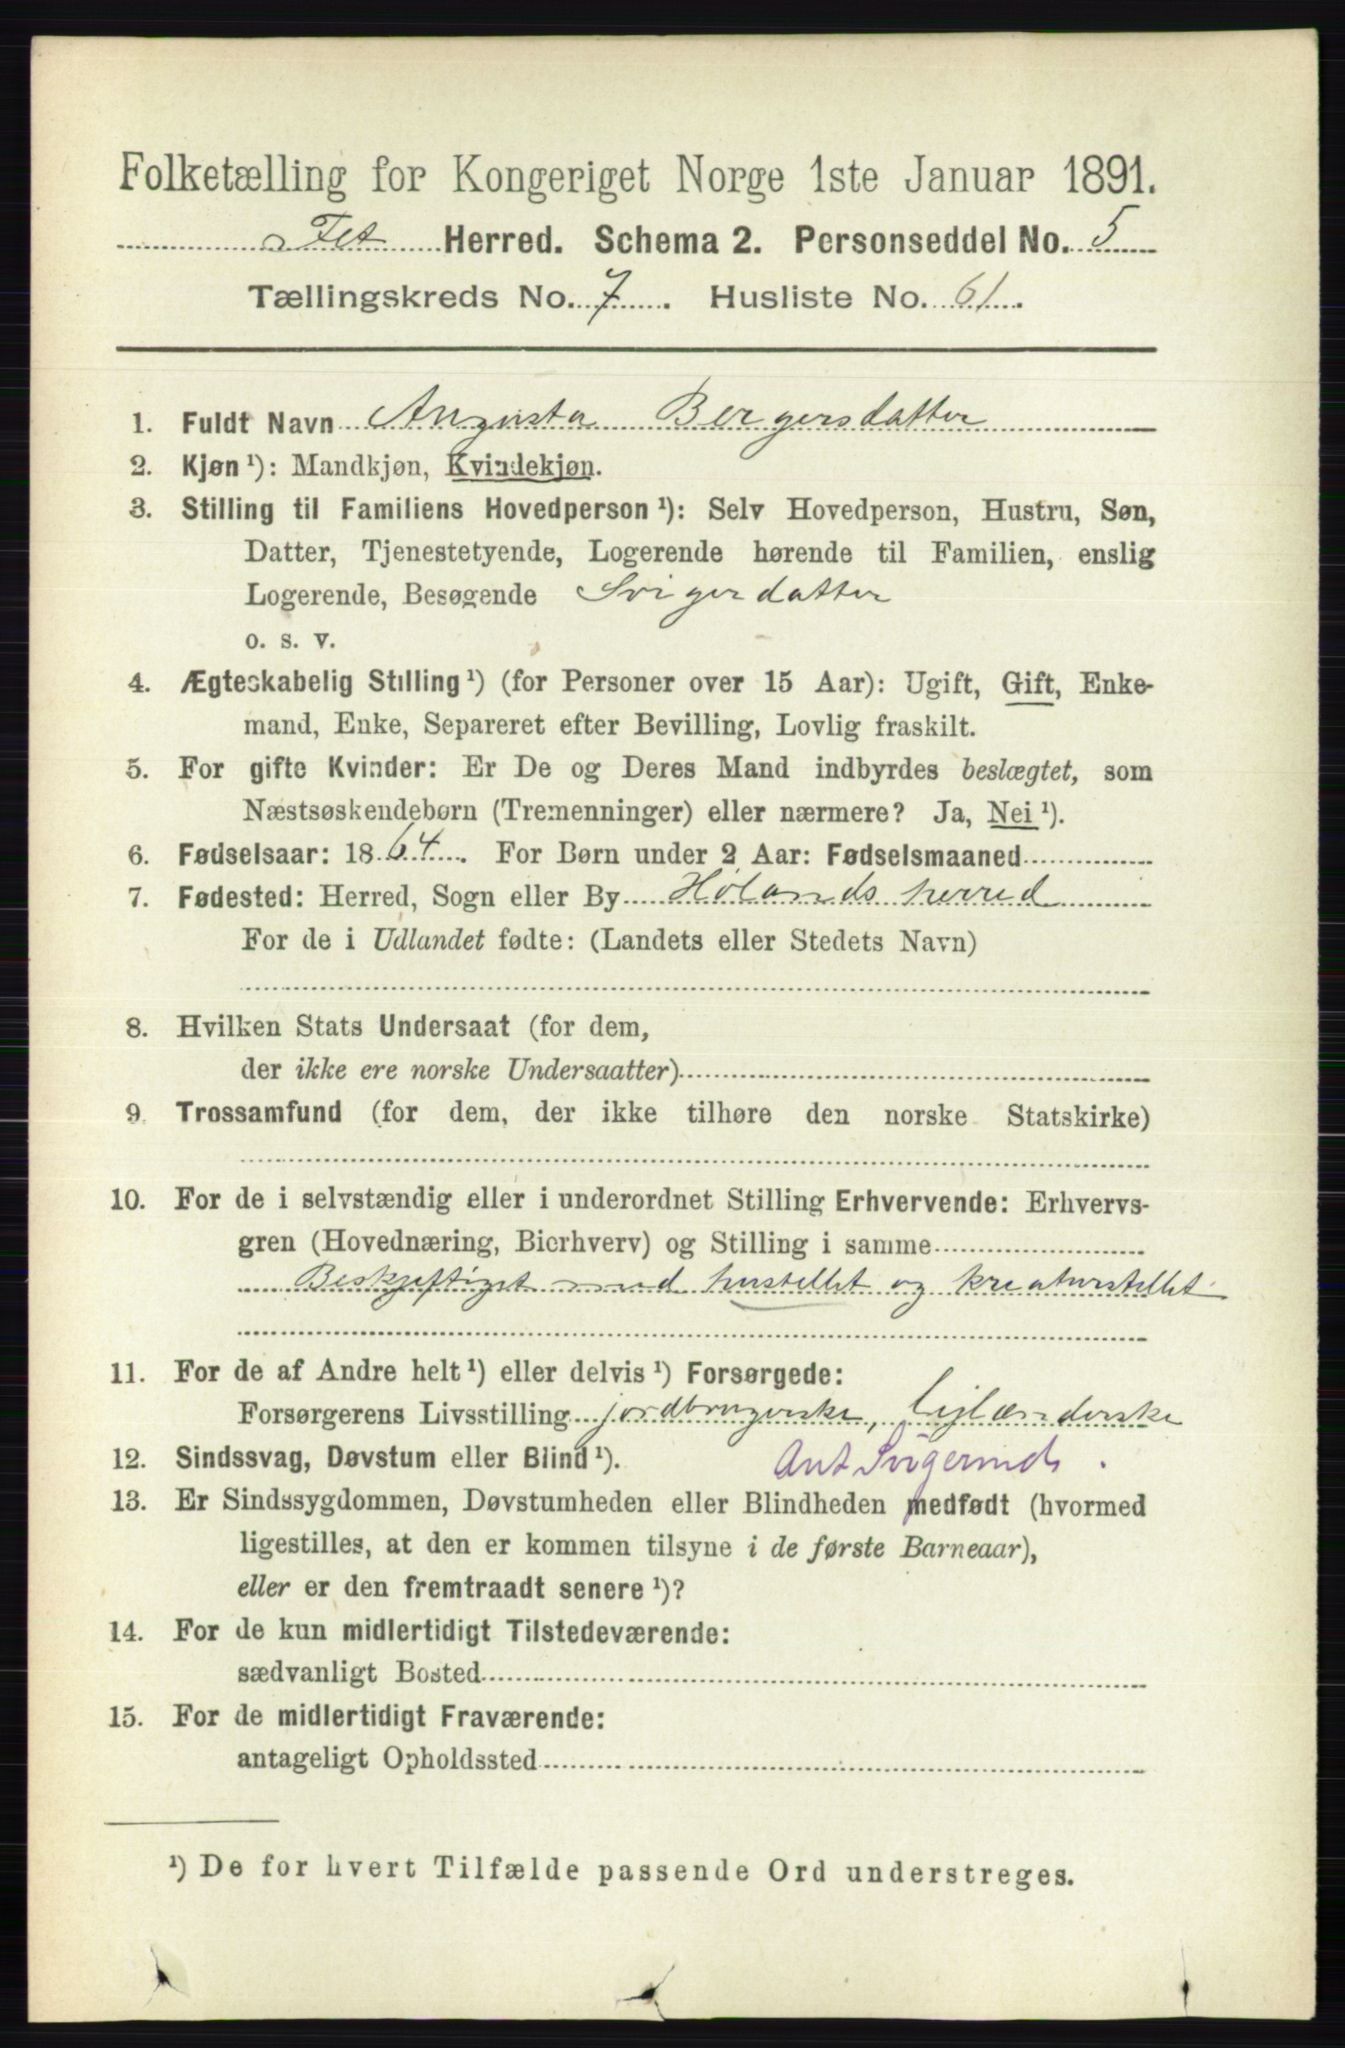 Folketælling for Kongeriget Norge 1ste Januar 1891.
Fet Herred. Schema 2. Personseddel No. 5
Tællingskreds No. 7. Husliste No. 61.
1. Fuldt Navn Augusta Bergersdatter
2. Kjøn ¹): Mandkjøn, Kvindekjøn.
3. Stilling til Familiens Hovedperson ¹): Selv Hovedperson, Hustru, Søn,
Datter, Tjenestetyende, Logerende hørende til Familien, enslig
Logerende, Besøgende Svigerdatter
o. s. v.
4. Ægteskabelig Stilling ¹) (for Personer over 15 Aar): Ugift, Gift, Enke-
mand, Enke, Separeret efter Bevilling, Lovlig fraskilt.
5. For gifte Kvinder: Er De og Deres Mand indbyrdes beslægtet, som
Næstsøskendebørn (Tremenninger) eller nærmere? Ja, Nei ¹).
6. Fødselsaar: 1864. For Børn under 2 Aar: Fødselsmaaned
7. Fødested: Herred, Sogn eller By Hølands herred
For de i Udlandet fødte: (Landets eller Stedets Navn)
8. Hvilken Stats Undersaat (for dem,
der ikke ere norske Undersaatter)
9. Trossamfund (for dem, der ikke tilhøre den norske Statskirke)
10. For de i selvstændig eller i underordnet Stilling Erhvervende: Erhvervs-
gren (Hovednæring, Bierhverv) og Stilling i samme
Beskjeftiget med husstellet og kreaturstellet
11. For de af Andre helt ¹) eller delvis ¹) Forsørgede:
Forsørgerens Livsstilling jordbrugerske,
12. Sindssvag, Døvstum eller Blind ¹).
13. Er Sindssygdommen, Døvstumheden eller Blindheden medfødt (hvormed
ligestilles, at den er kommen tilsyne i de første Barneaar),
eller er den fremtraadt senere ¹)?
14. For de kun midlertidigt Tilstedeværende:
sædvanligt Bosted
15. For de midlertidigt Fraværende:
antageligt Opholdssted
¹) De for hvert Tilfælde passende Ord understreges.